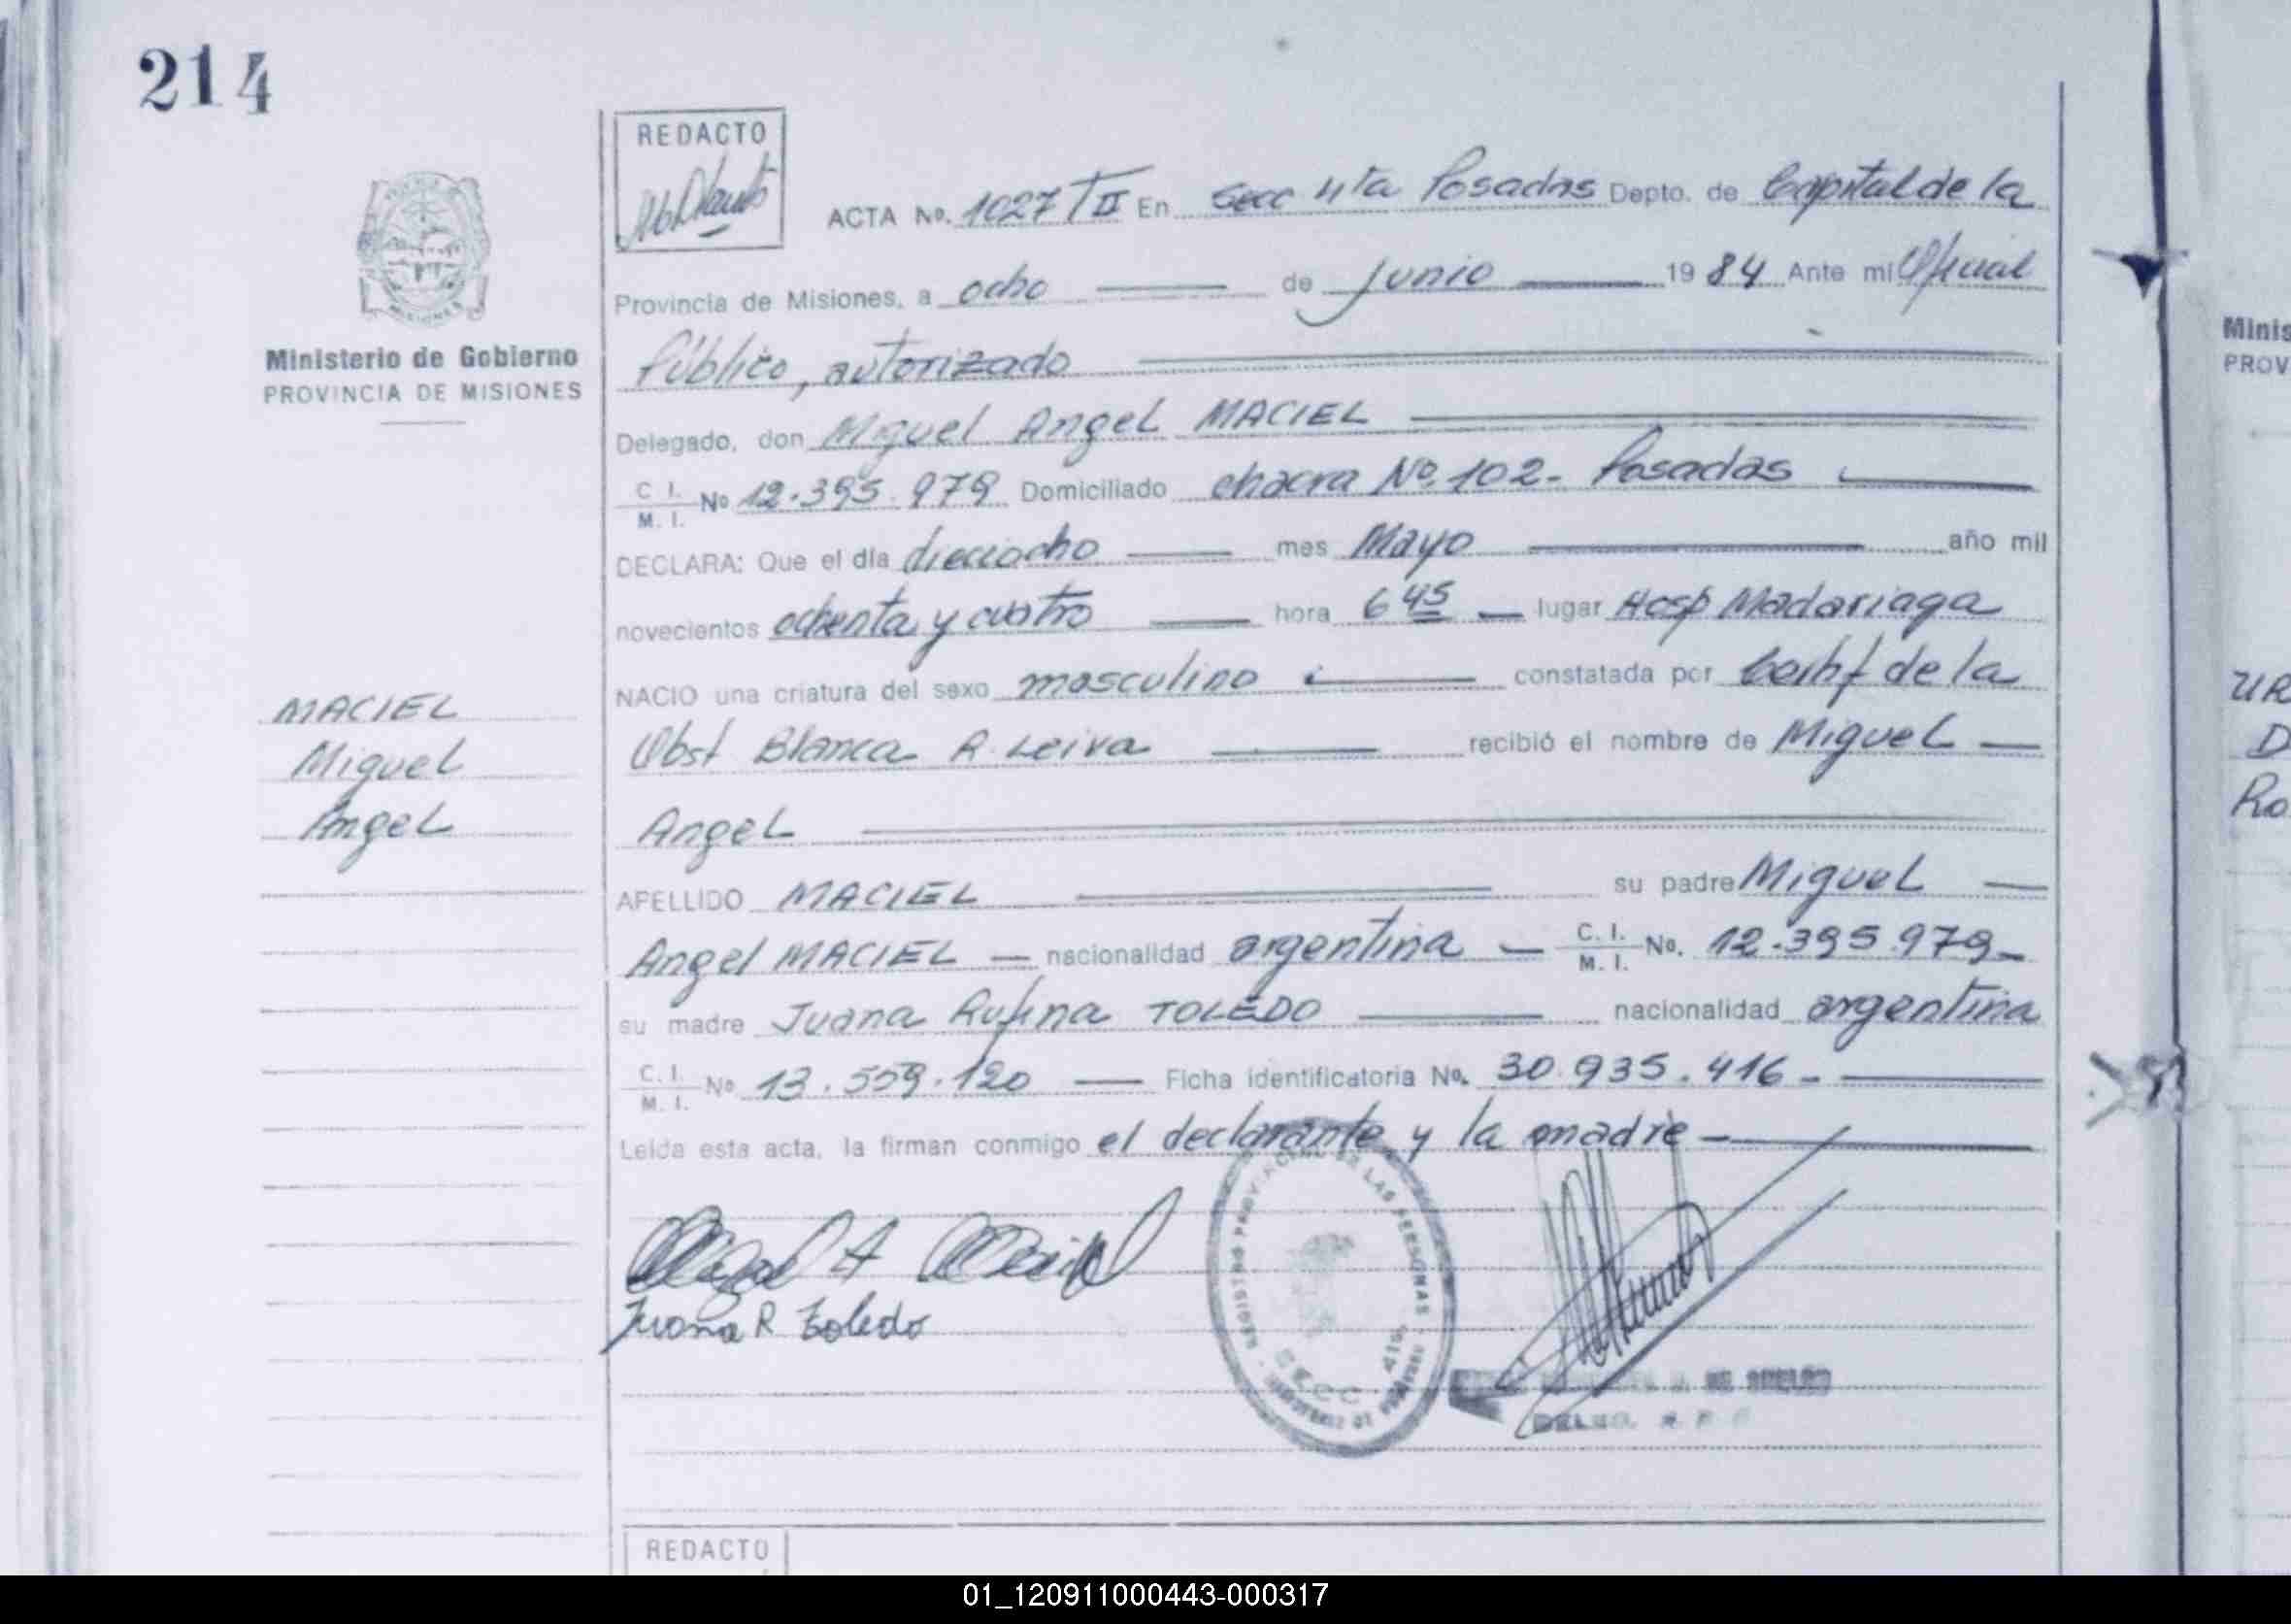 214
REDACTO
ACTA No. 1027 TII En Secc 4ta Posadas Depto. de Capital de la
Provincia de Misiones, a ocho de Junio 1984 Ante mi Oficial
Público, autorizado
Ministerio de Gobierno
PROVINCIA DE MISIONES
Delegado, don Miguel Angel MACIEL
C. I. M. I. No 12.395.979 Domiciliado chacra Nº 102- Posadas
DECLARA: Que el día dieciocho mes Mayo año mil
novecientos ochenta y cuatro hora 6 45 lugar Hosp Madariaga
NACIO una criatura del sexo masculino constatada por Certif de la
Obst Blanca R. Leiva recibió el nombre de Miguel
Angel
APELLIDO MACIEL su padre Miguel
Angel MACIEL nacionalidad argentina C. I. M. I. No. 12.395.979-
su madre Juana Rufina TOLEDO nacionalidad argentina
C. I. M. I. No 13.559.120 Ficha identificatoria No. 30.935.416-
Leída esta acta, la firman conmigo el declarante y la madre-
MACIEL
Miguel
Angel
Juana R Toledo
REGISTRO PROVINCIAL DE LAS PERSONAS
SECC. 4ta.
REDACTO
Minis
PROV
UR
D
Ro
01_120911000443-000317